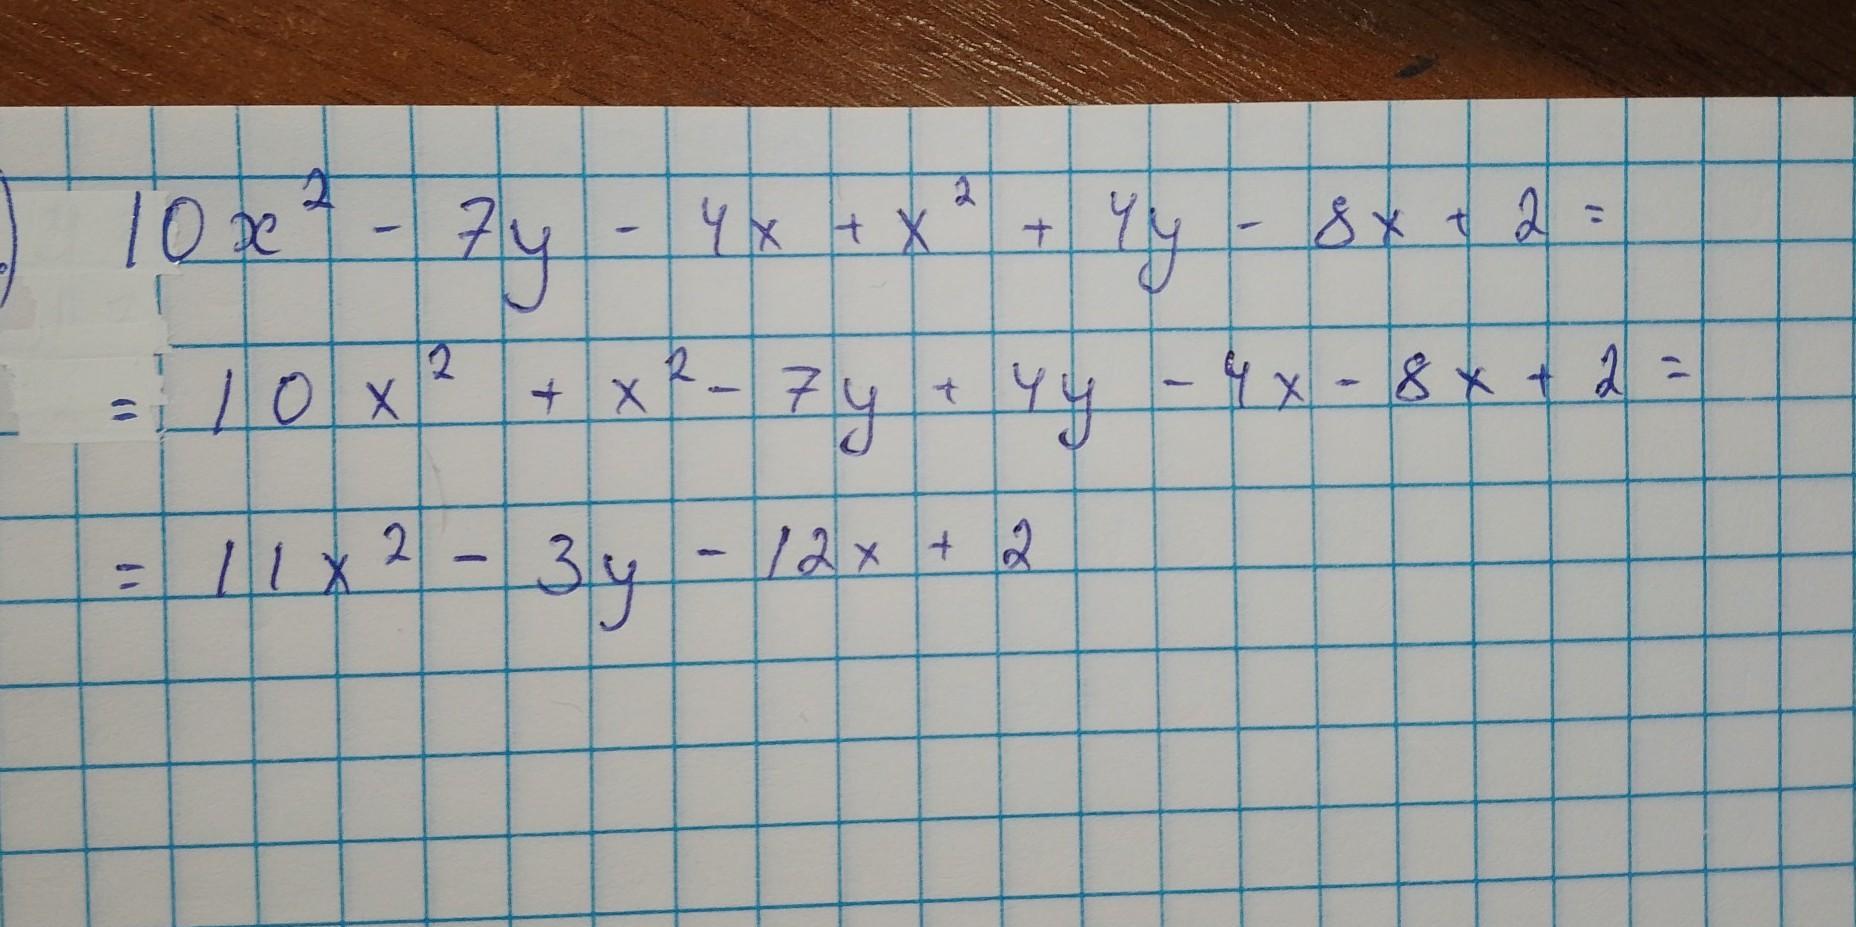 ) 10x² - 7y - 4x + x² + 4y - 8x + 2 =
= 10x² + x² - 7y + 4y - 4x - 8x + 2 =
= 11x² - 3y - 12x + 2